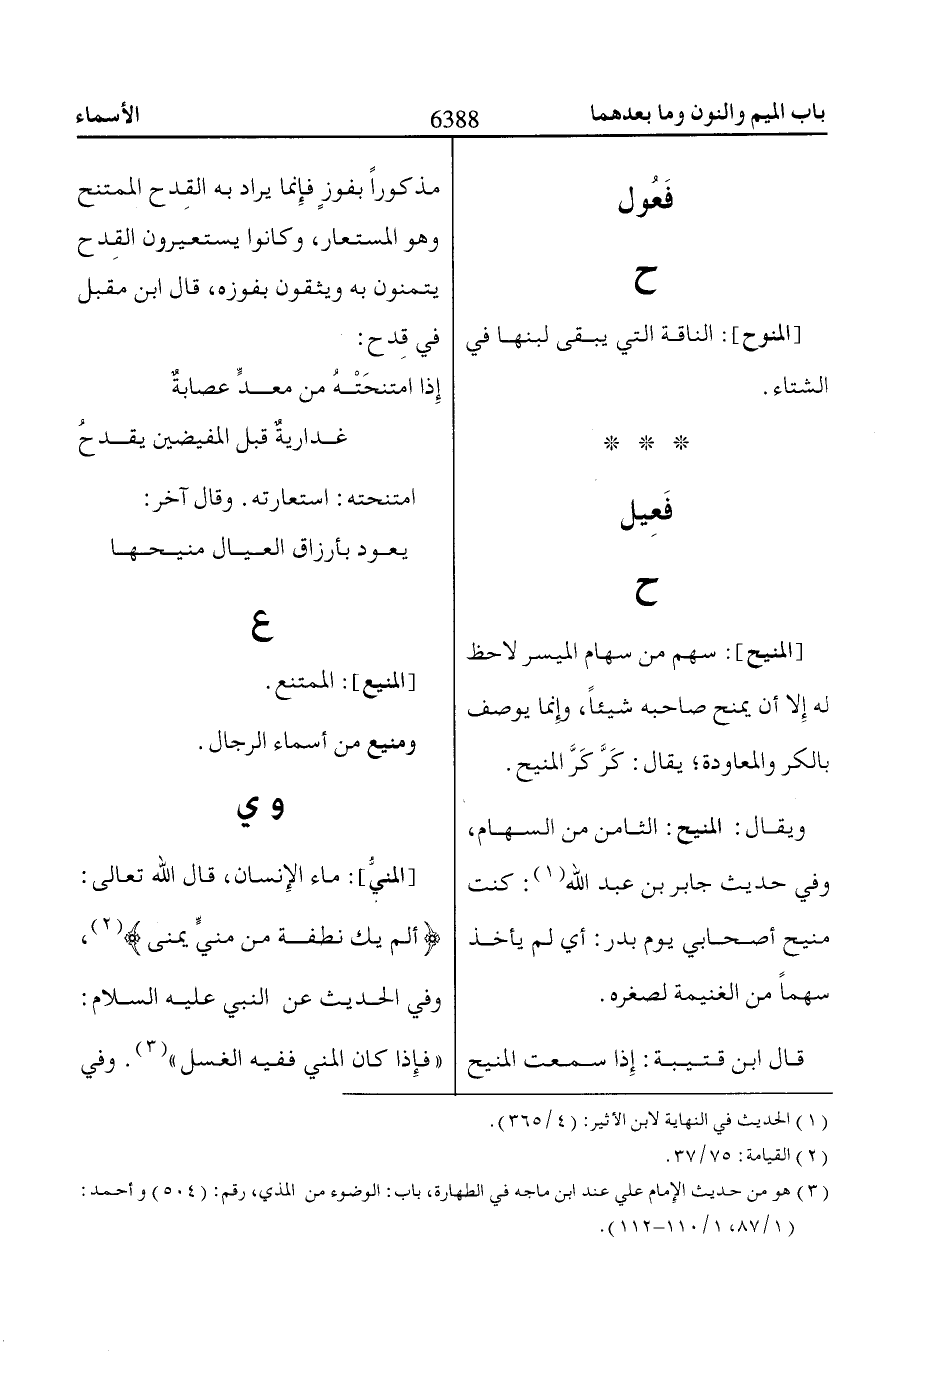 باب الميم والنون وما بعدهما
6388
الأسماء
فَعُول
ح
[المنوح]: الناقة التي يبقى لبنها في
الشتاء.
* * *
فَعِيل
ح
[المنيح]: سهم من سهام الميسر لاحظ
له إلا أن يمنح صاحبه شيئاً، وإنما يوصف
بالكر والمعاودة؛ يقال: كَرَّ كَرَّ المنيح.
ويقال: المنيح: الثامن من السهام،
وفي حديث جابر بن عبد الله(١): كنت
منيح أصحابي يوم بدر: أي لم يأخذ
سهماً من الغنيمة لصغره.
قال ابن قتيبة: إذا سمعت المنيح
مذكوراً بفوزٍ فإنما يراد به القِدح الممتنح
وهو المستعار، وكانوا يستعيرون القِدح
يتمنون به ويثقون بفوزه، قال ابن مقبل
في قِدح:
إذا امتنحَتْهُ من معدٍّ عصابةٌ
غداريةٌ قبل المفيضين يقدحُ
امتنحته: استعارته. وقال آخر:
يعود بأرزاق العيال منيحها
ع
[المنيع]: الممتنع.
ومنيع من أسماء الرجال.
و ي
[المنيُّ]: ماء الإنسان، قال الله تعالى:
﴿ألم يك نطفة من منيٍّ يمنى﴾(٢)،
وفي الحديث عن النبي عليه السلام:
«فإذا كان المني ففيه الغسل»(٣). وفي
(١) الحديث في النهاية لابن الأثير: (٤/٣٦٥).
(٢) القيامة: ٧٥/٣٧.
(٣) هو من حديث الإمام علي عند ابن ماجه في الطهارة، باب: الوضوء من المذي، رقم: (٥٠٤) و أحمد:
(١/٨٧، ١/١١٠-١١٢).